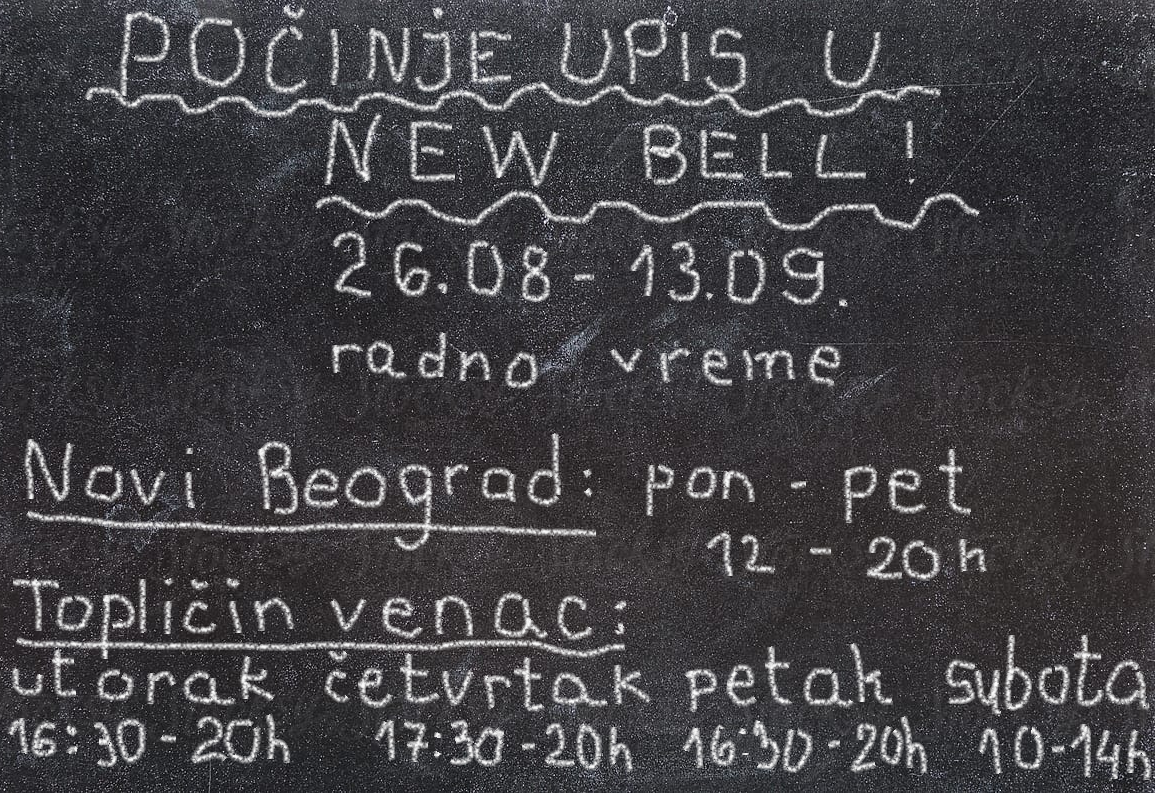 POČINJE UPIS U
NEW BELL!
26.08 - 13.09.
radno vreme
Novi Beograd: pon - pet
12 - 20h
Topličin venac:
utorak četvrtak petak subota
16:30-20h 17:30-20h 16:30-20h 10-14h